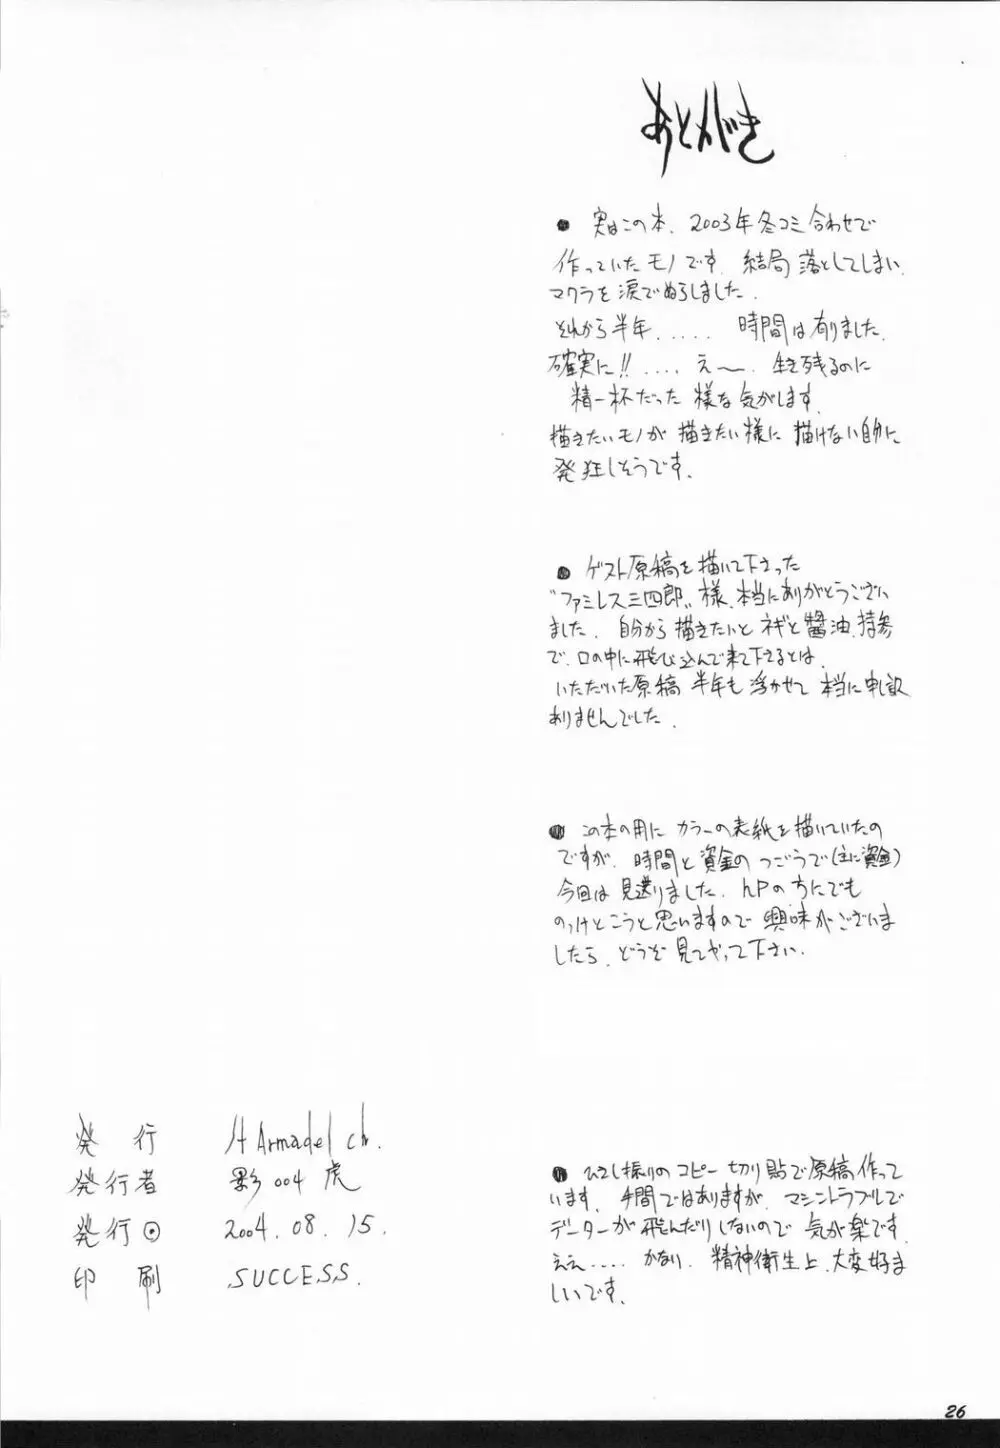 あとがき
● 実はこの本、2003年冬コミ合わせで
作っていたモノです。結局落としてしまい、
マクラを涙でぬらしました。
それから半年..... 時間は有りました。
確実に!! .... え〜、生き残るのに
精一杯だった様な気がします。
描きたいモノが描きたい様に描けない自分に
発狂しそうです。
● ゲスト原稿を描いて下さった
"ファミレス三四郎"様、本当にありがとうござい
ました。自分から描きたいとネギと醤油持参
で、口の中に飛び込んで来て下さるとは、
いただいた原稿半年も浮かせて本当に申し訳
ありませんでした。
● この本の用にカラーの表紙を描いていたの
ですが、時間と資金のつごうで(主に資金)
今回は見送りました。HPの方にでも
のっけとこうと思いますので興味がございま
したら、どうぞ見てやって下さい。
● ひさし振りのコピー切り貼で原稿作って
います。手間ではありますが、マシントラブルで
データーが飛んだりしないので気が楽です。
ええ..... かなり、精神衛生上、大変好ま
しいです。
発行 Armadel ch.
発行者 影004虎
発行日 2004.08.15.
印刷 SUCCESS.
26